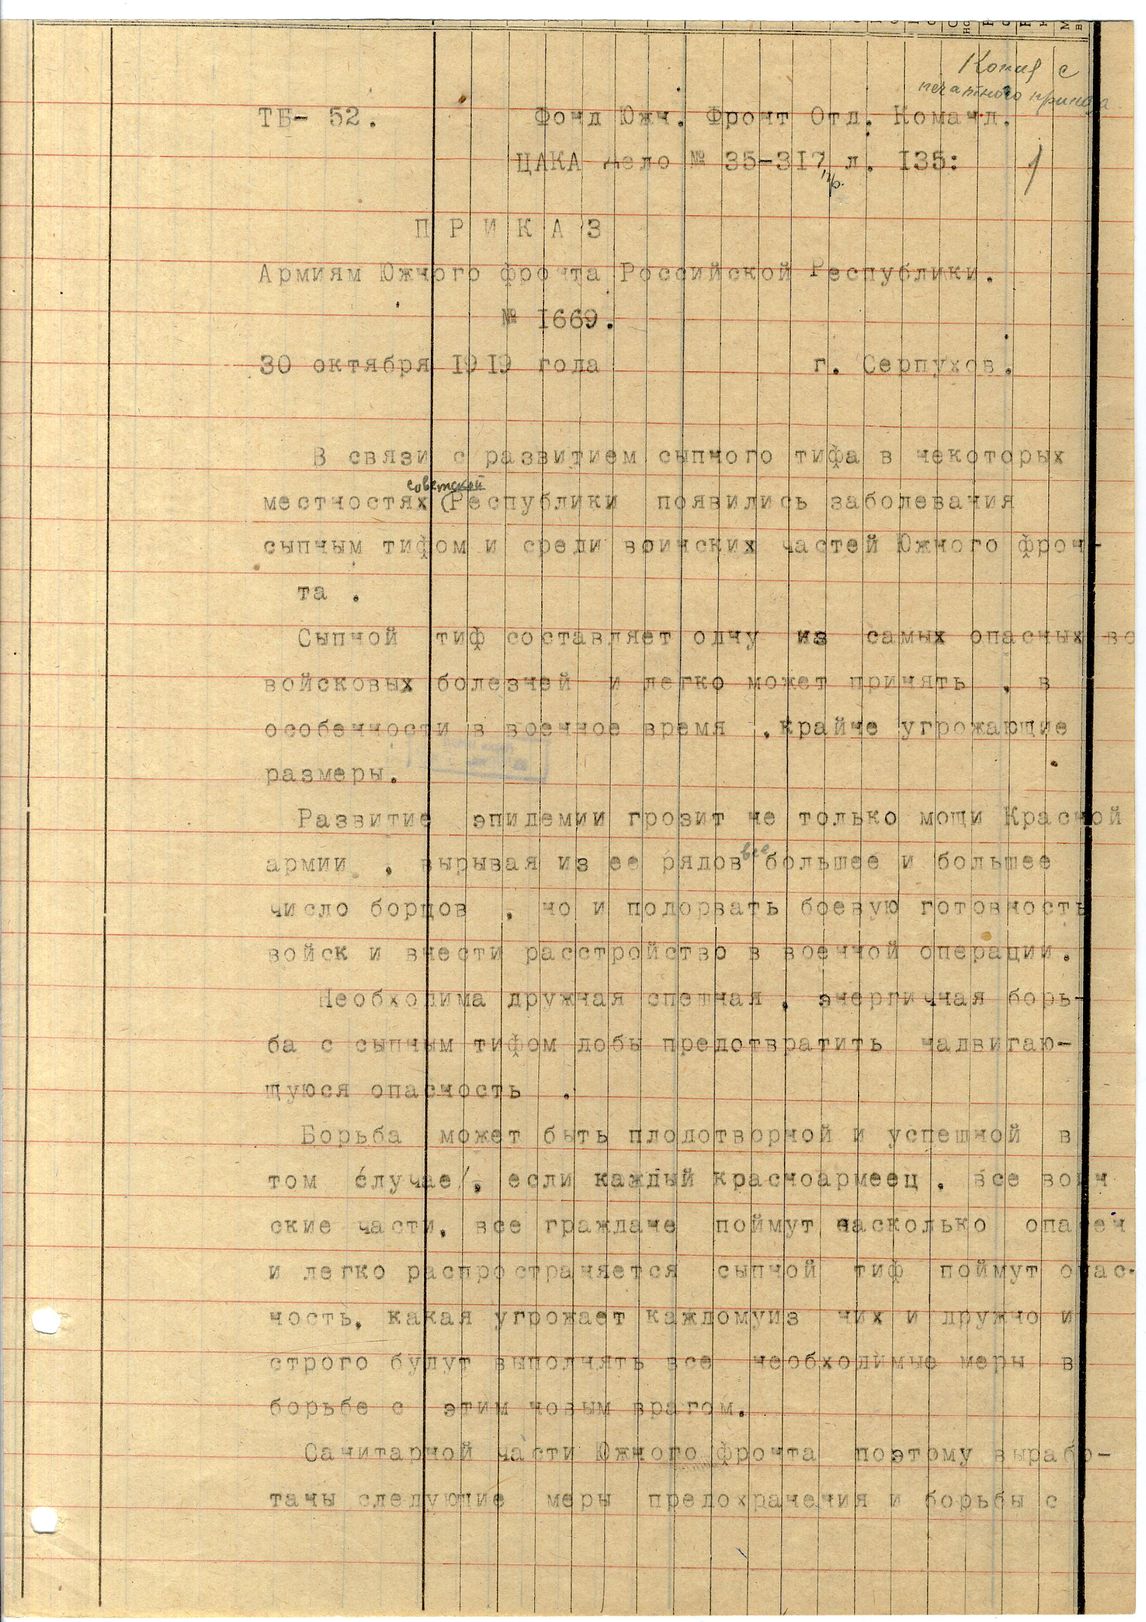 Копия с
печатного приказа
ТБ- 52.    Фонд Южн. Фронт Отд. Команд.
ЦАКА дело № 35-317 л. 135:
1
П Р И К А З
Армиям Южного фронта Российской Республики.
№ 1669.
30 октября 1919 года    г. Серпухов.
В связи с развитием сыпного тифа в некоторых
советской
местностях (Республики появились заболевания
сыпным тифом и среди воинских частей Южного фрон-
та .
Сыпной тиф составляет одну из самых опасных во
войсковых болезней и легко может принять , в
особенности в военное время , крайне угрожающие
размеры.
Развитие эпидемии грозит не только мощи Красной
армии , вырывая из ее рядов все большее и большее
число борцов , но и подорвать боевую готовность
войск и внести расстройство в военной операции.
Необходима дружная спешная , энергичная борь-
ба с сыпным тифом добы предотвратить надвигаю-
щуюся опасность .
Борьба может быть плодотворной и успешной в
том случае/, если каждый красноармеец , все воин
ские части, все граждане поймут насколько опасен
и легко распространяется сыпной тиф поймут опас-
ность, какая угрожает каждомуиз них и дружно и
строго будут выполнять все необходимые меры в
борьбе с этим новым врагом.
Санитарной части Южного фронта поэтому вырабо-
таны следующие меры предохранения и борьбы с